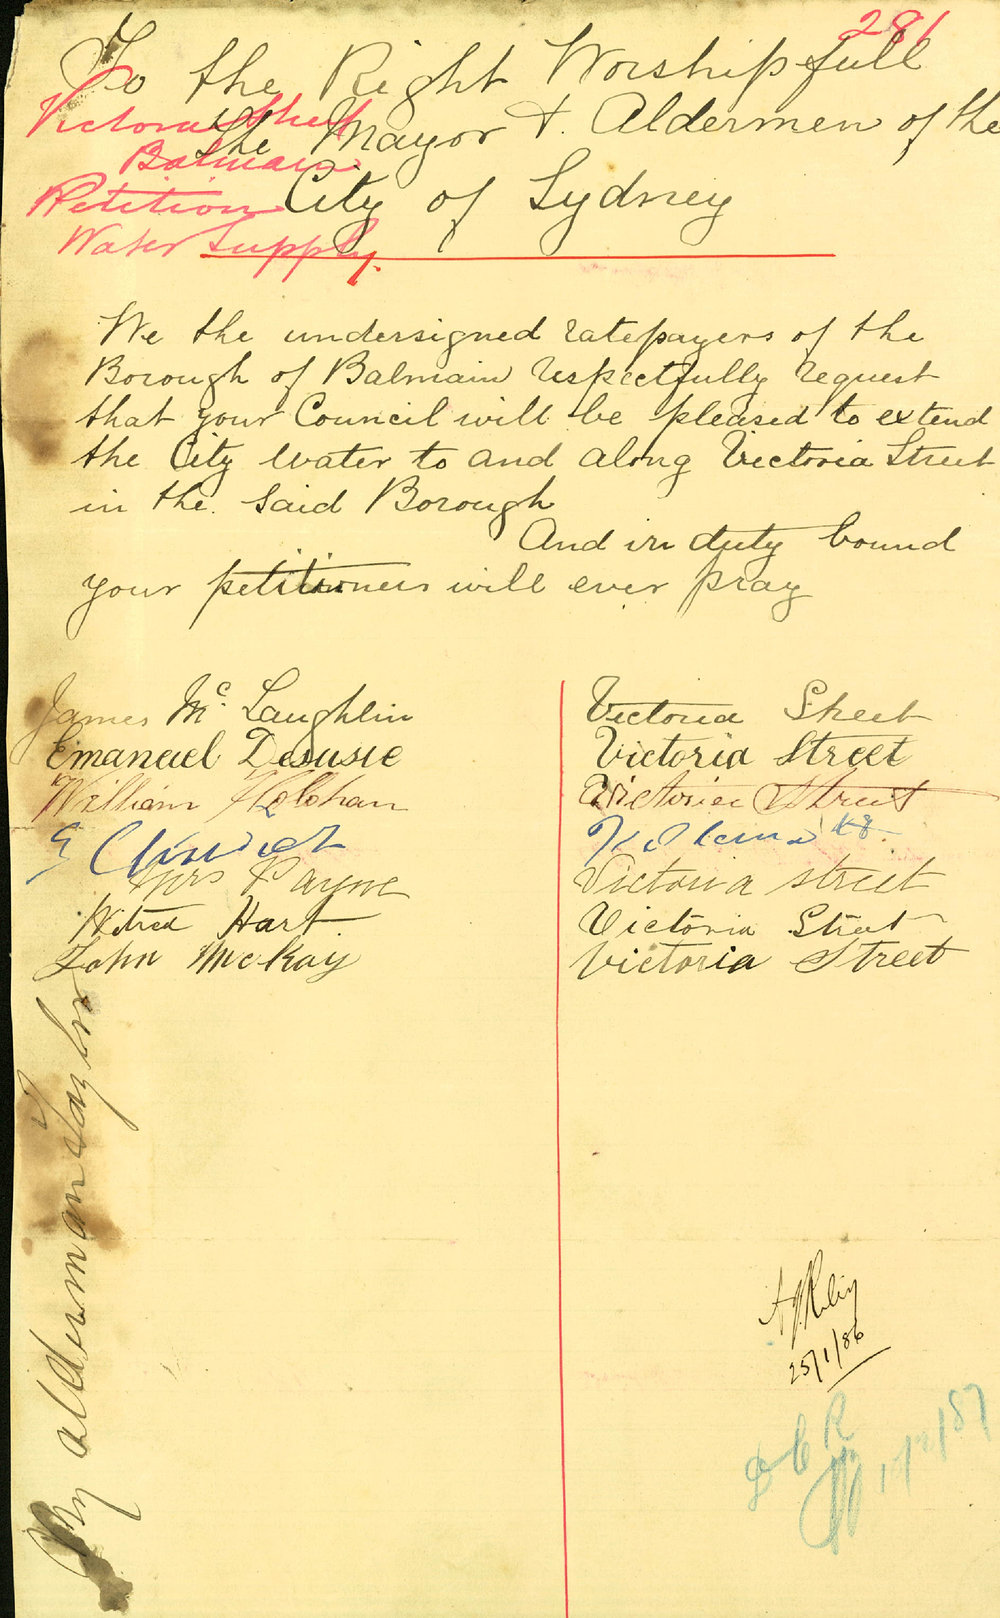 281
To the Right Worshipfull
The Mayor &. Aldermen of the
City of Sydney
Victoria Street
Balmain
Petition
Water Supply.
We the undersigned ratepayers of the
Borough of Balmain respectfully request
that your Council will be pleased to extend
the City Water to and along Victoria Street
in the. said Borough
And in duty bound
your petitioners will ever pray
James Mc Laughlin Victoria Street
Emanuel Desusie Victoria Street
William Holohan Victoria Street
E
Mrs Payne Victoria street
Hart. Victoria Street
John McKay Victoria Street
By alderman Taylor
25/1/86